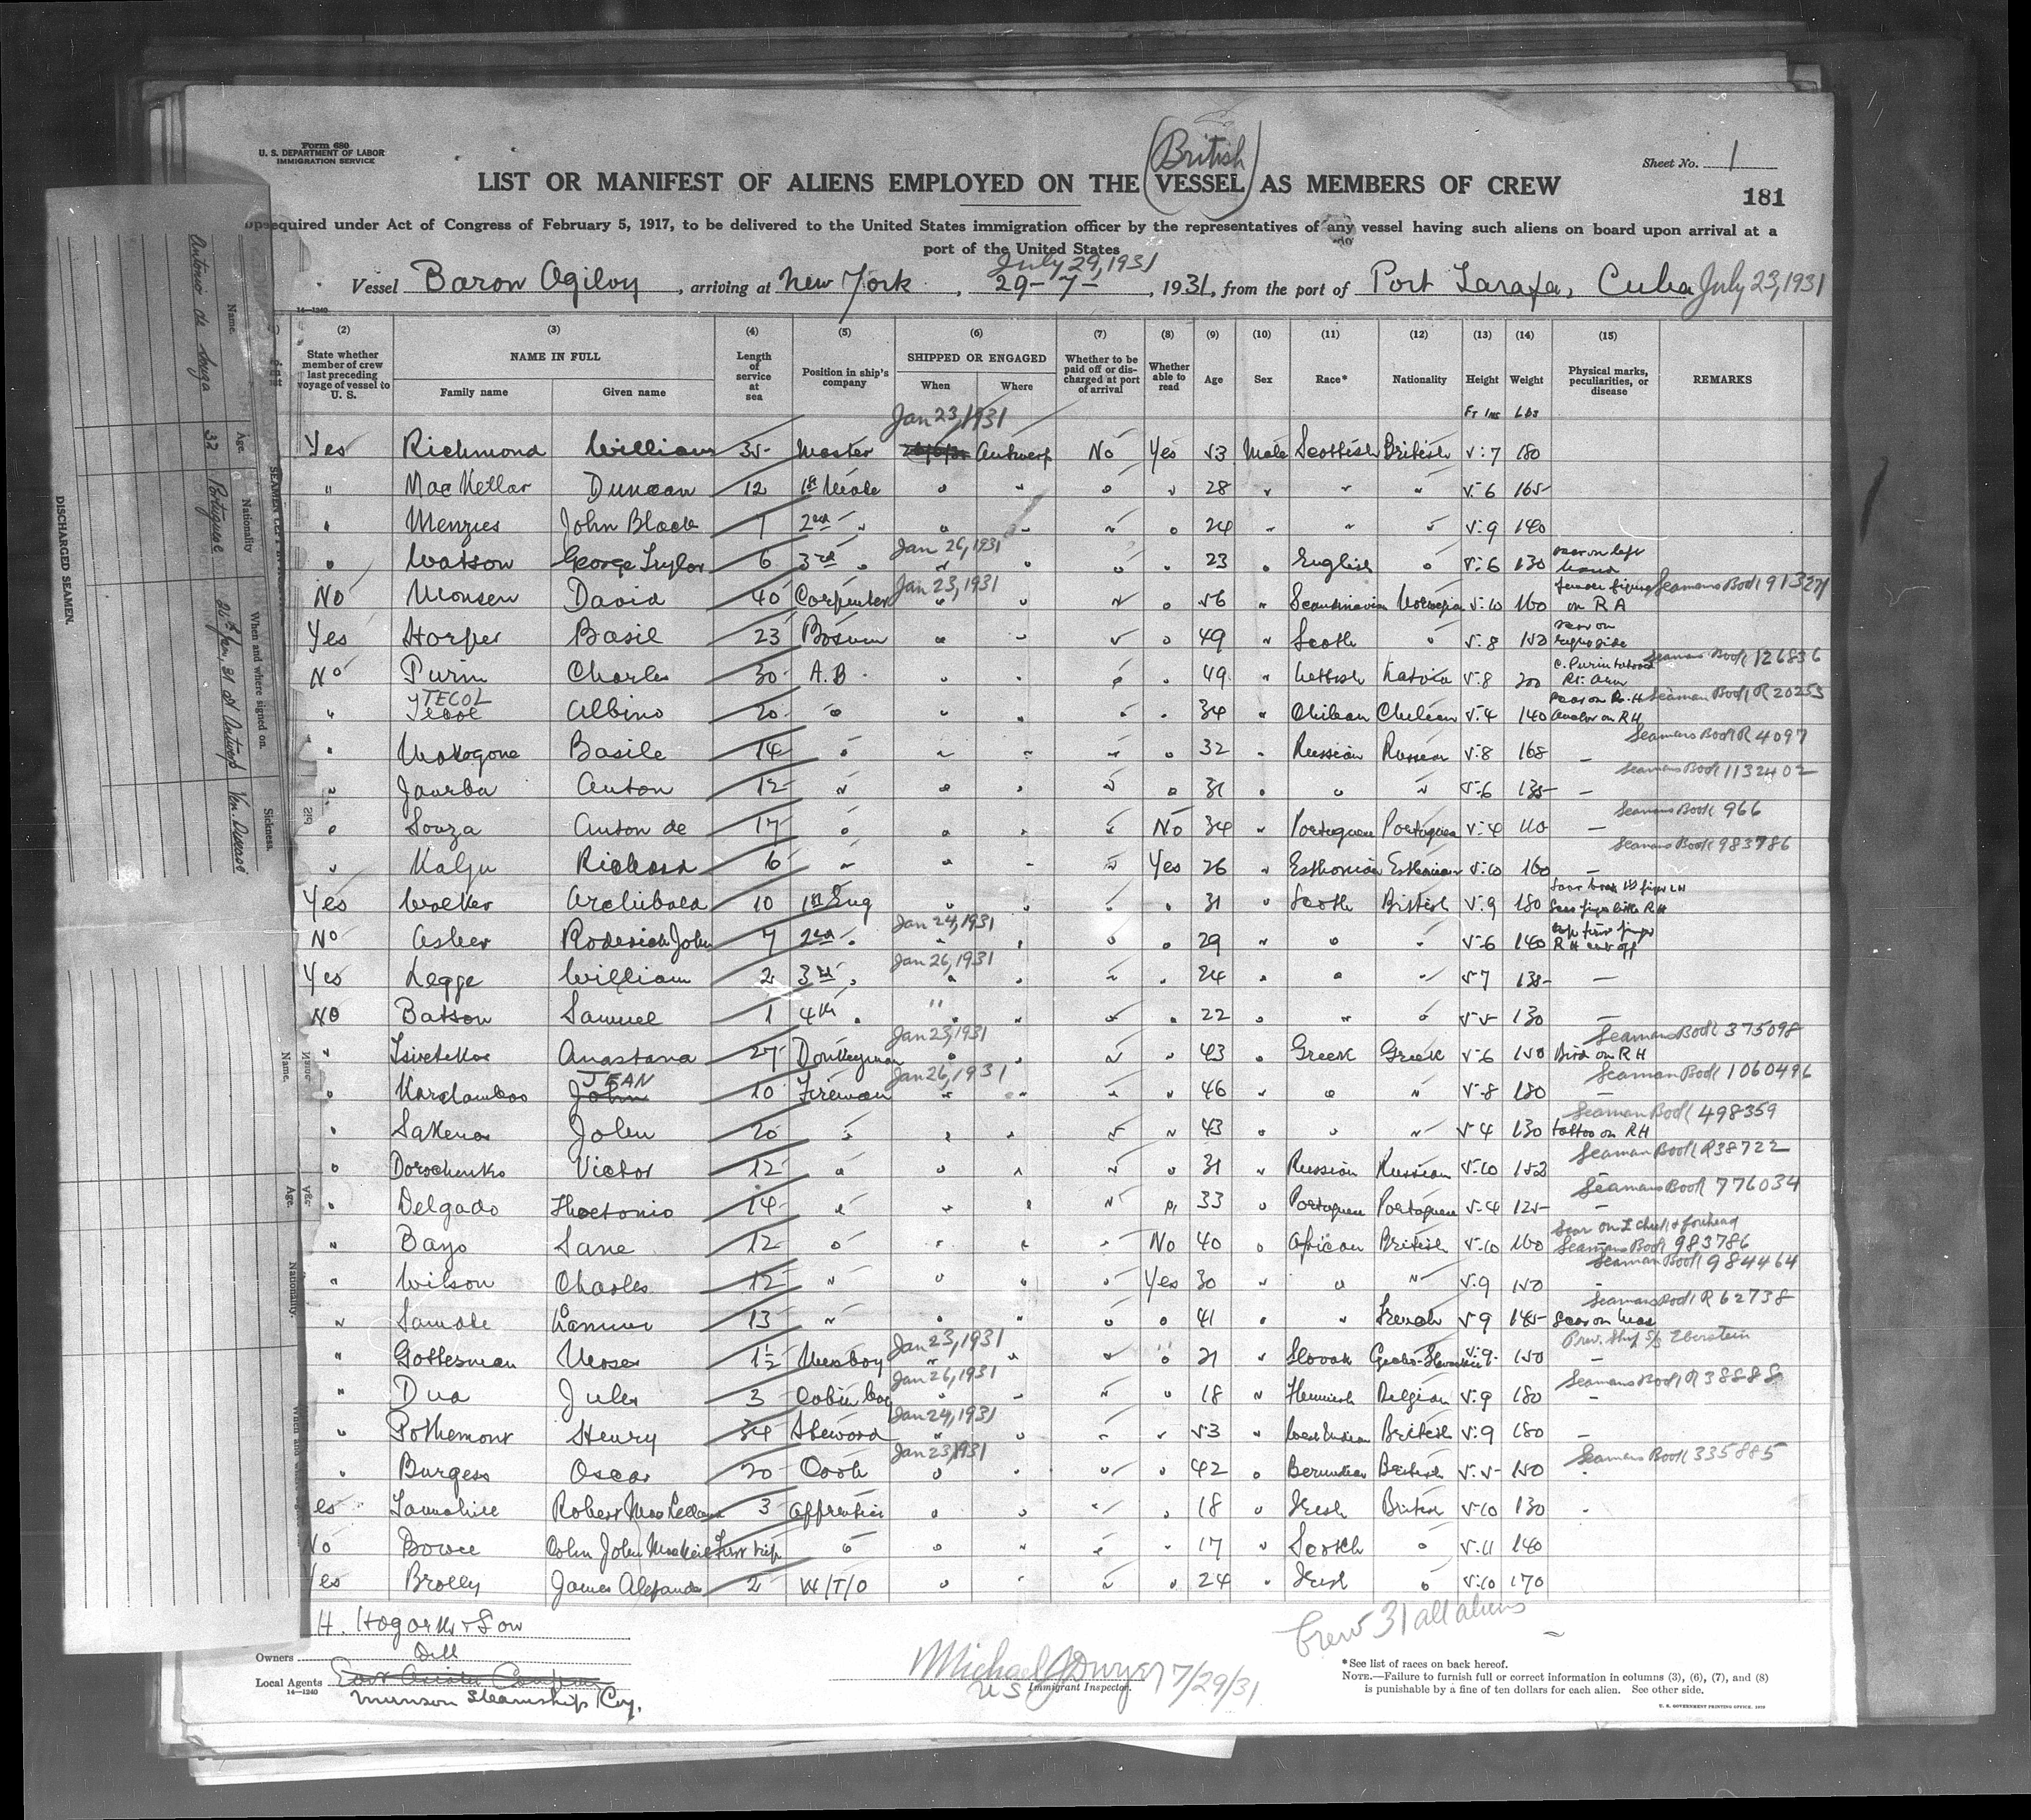 Form 680
U. S. DEPARTMENT OF LABOR
IMMIGRATION SERVICE
(British)
Sheet No. 1
LIST OR MANIFEST OF ALIENS EMPLOYED ON THE VESSEL AS MEMBERS OF CREW
181
required under Act of Congress of February 5, 1917, to be delivered to the United States immigration officer by the representatives of any vessel having such aliens on board upon arrival at a
port of the United States
July 29, 1931
Vessel Baron Ogilvy, arriving at New York, 29-7-, 1931, from the port of Port Tarafa, Cuba July 23, 1931
14-1240
(2) (3) (4) (5) (6) (7) (8) (9) (10) (11) (12) (13) (14) (15)
State whether member of crew last preceding voyage of vessel to U. S. NAME IN FULL Family name Given name Length of service at sea Position in ship's company SHIPPED OR ENGAGED When Where Whether to be paid off or discharged at port of arrival Whether able to read Age Sex Race* Nationality Height Weight Physical marks, peculiarities, or disease REMARKS
Ft Ins Lbs
Jan 23, 1931
Yes Richmond William 35 Master Antwerp No Yes 53 Male Scottish British 5:7 180
" MacKellar Duncan 12 1st Mate " " " " 28 " " " 5:6 165
" Menzies John Black 7 2nd " " " " " 24 " " " 5:9 140
Jan 26, 1931
" Watson George Taylor 6 3rd " " " " " 23 " English " 5:6 130 scar on left hand
Jan 23, 1931
No Monsen David 40 Carpenter " " " " 56 " Scandinavian Norwegian 5:10 160 on R A Seamans Book 913271
Yes Harper Basil 23 Bosun " " " " 49 " Scotch " 5:8 150 scar on
No Purin Charles 30 A.B. " " " " 49 " Lettish Latvia 5:8 200 C. Purin tatooed Rt. Arm Seamans Book 126836
TECOL
" Albino 20 " " " " " 34 " Chilean Chilean 5:4 140 scar on R. H Anchor on RH Seaman Book R 20255
" Makogone Basile 14 " " " " " 32 " Russian Russian 5:8 168 - Seamans Book R 4097
" Jaurba Anton 12 " " " " " 31 " " " 5:6 135 - Seamans Book 1132402
" Souza Anton de 17 " " " " No 34 " Portuguese Portuguese 5:4 110 - Seamans Book 966
" Kalju Richard 6 " " " " Yes 26 " Esthonian Esthonian 5:10 160 - Seamans Book 983786
Yes Walker Archibald 10 1st Eng " " " " 31 " Scotch British 5:9 180
Jan 24, 1931
No Asher Roderick John 7 2nd " " " " " 29 " " " 5:6 140 R H cut off
Jan 26, 1931
Yes Legge William 2 3rd " " " " " 24 " " " 5 7 135 -
No Batson Samuel 1 4th " " " " " 22 " " " 5 5 130 -
Jan 23, 1931
" Anastana 27 Donkeyman " " " " 43 " Greek Greek 5:6 150 Bird on RH Seamans Book 375098
Jan 26, 1931
JEAN
" Kardambos John 10 Fireman " " " " 46 " " " 5-8 180 - Seaman Book 1060496
" John 20 " " " " " 43 " " " 5 4 130 tattoo on RH Seaman Book 498359
" Dorochenko Victor 12 " " " " " 31 " Russian Russian 5:10 152 - Seaman Book R38722
" Delgado 14 " " " " " 33 " Portuguese Portuguese 5:4 125 - Seamans Book 776034
" Bayo Sane 12 " " " " No 40 " African British 5:10 160 Scar on L cheek & forehead Seamans Book 983786
" Wilson Charles 12 " " " " Yes 30 " " " 5:9 150 - Seaman Book 984464
" 13 " " " " " 41 " " French 5:9 145 Scar on Seamans Book R 62738
Jan 23, 1931
" Gottesman Moses 1½ Messboy " " " " 21 " Slovak 5:9 150 - Prev. Ship S/S Eberstein
Jan 26, 1931
" Dua Jules 3 Cabin boy " " " " 18 " Flemish Belgian 5:9 180 - Seamans Book R 38888
Jan 24, 1931
" Pothemont Henry 34 Steward " " " " 53 " West Indian British 5:9 180 -
Jan 23, 1931
" Burgess Oscar 20 Cook " " " " 42 " British 5:5 150 Seamans Book 335885
es Robert 3 Apprentice " " " " 18 " Irish British 5:10 130
No Bowie First trip " " " " " 17 " Scotch " 5:11 140
Yes Brolly James Alexander 2 W/T/O " " " " 24 " Irish " 5:10 170
Crew 31 all aliens
Owners H. Hogarth & Son
Local Agents
Munson Steamship Coy.
14-1240
Michael J Dwyer 7/29/31
U S Immigrant Inspector.
*See list of races on back hereof.
NOTE.—Failure to furnish full or correct information in columns (3), (6), (7), and (8)
is punishable by a fine of ten dollars for each alien. See other side.
U. S. GOVERNMENT PRINTING OFFICE
DISCHARGED SEAMEN.
Name. Age. Nationality When and where signed on. Sickness.
Antonio de Souza 32 Portuguese 26th Jan, 31 at Antwerp Ven. Disease
Name. Age. Nationality.